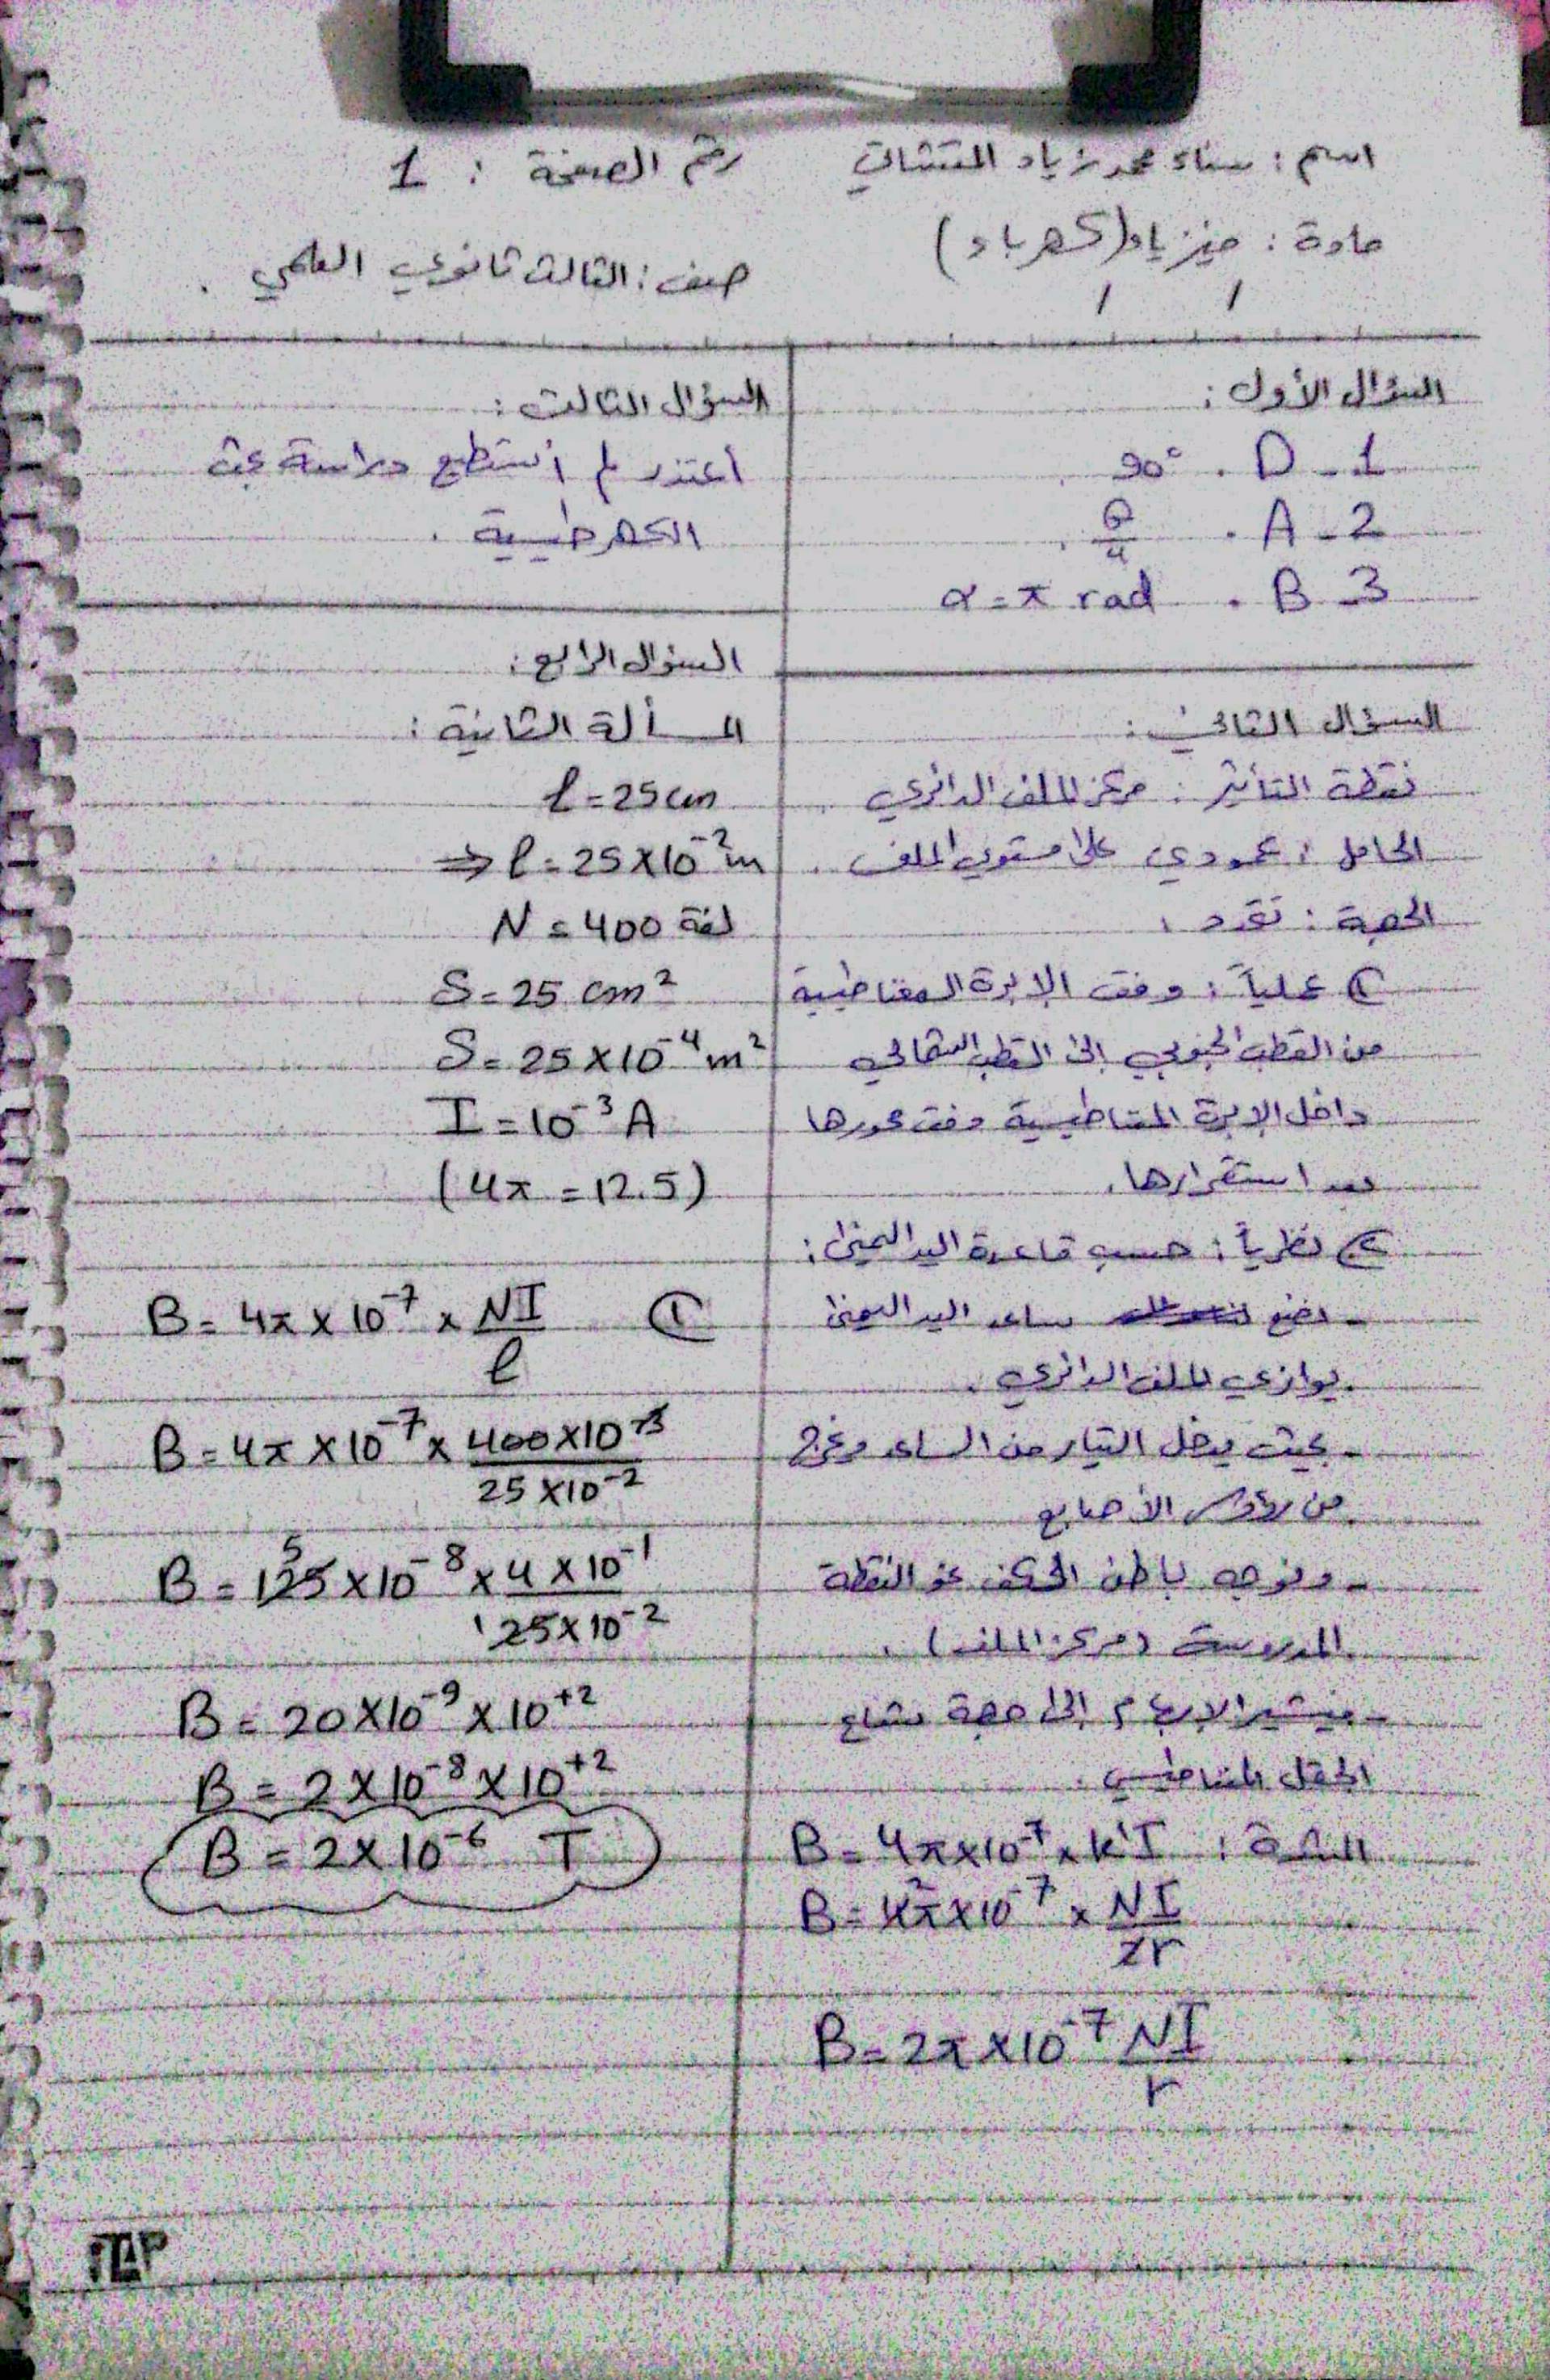 اسم : سناء محمد زياد
رقم الصفحة : 1
مادة : فيزياء (كهرباء)
صف : الثالث ثانوي العلمي .
السؤال الأول :
1 - D . 90°
2 - A .
3 - B . α = π rad
السؤال الثاني :
نقطة التأثير : مركز الملف الدائري .
الحامل : عمودي على مستوي الملف .
الجهة : تحدد :
عملياً : وفق الإبرة المغناطيسية
من القطب الجنوبي إلى القطب الشمالي
داخل الإبرة المغناطيسية وفق محورها
بعد استقرارها .
نظرياً : حسب قاعدة اليد اليمنى :
- نضع ساعد اليد اليمنى
يوازي الملف الدائري .
- بحيث يدخل التيار من الساعد ويخرج
من رؤوس الأصابع
- ونوجه باطن الكف نحو النقطة
المدروسة (مركز الملف) .
- فيشير الإبهام إلى جهة شعاع
الحقل المغناطيسي .
الشدة : B = 4π×10⁻⁷ × k'I
B = 4π×10⁻⁷ × NI
2r
B = 2π×10⁻⁷ NI
r
السؤال الثالث :
أعتذر لم أستطع دراسة بحث
الكهرطيسية .
السؤال الرابع :
المسألة الثانية :
l = 25 cm
⇒ l = 25×10⁻² m
N = 400 لفة
S = 25 cm²
S = 25×10⁻⁴ m²
I = 10⁻³ A
(4π = 12.5)
① B = 4π × 10⁻⁷ × NI
l
B = 4π × 10⁻⁷ × 400×10⁻³
25×10⁻²
B = 125×10⁻⁸ × 4×10⁻¹
25×10⁻²
B = 20×10⁻⁹ × 10⁺²
B = 2×10⁻⁸ × 10⁺²
B = 2×10⁻⁶ T